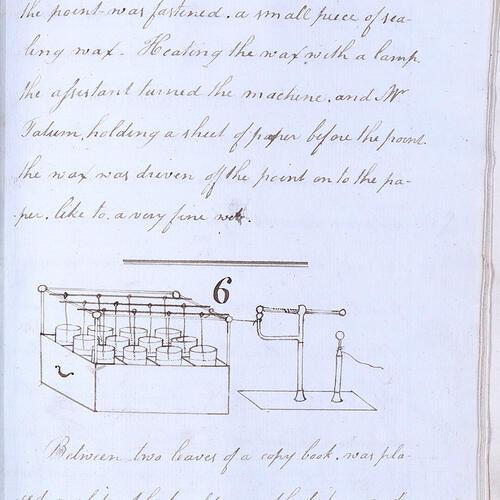 the point was fastened. a small piece of sea-
ling wax - Heating the wax with a lamp.
the assistant turned the machine. and Mr
Tatum, holding a sheet of paper before the point.
the wax was driven off the point on to the pa-
per. like to a very fine net.
6
Between two leaves of a copy book. was pla-